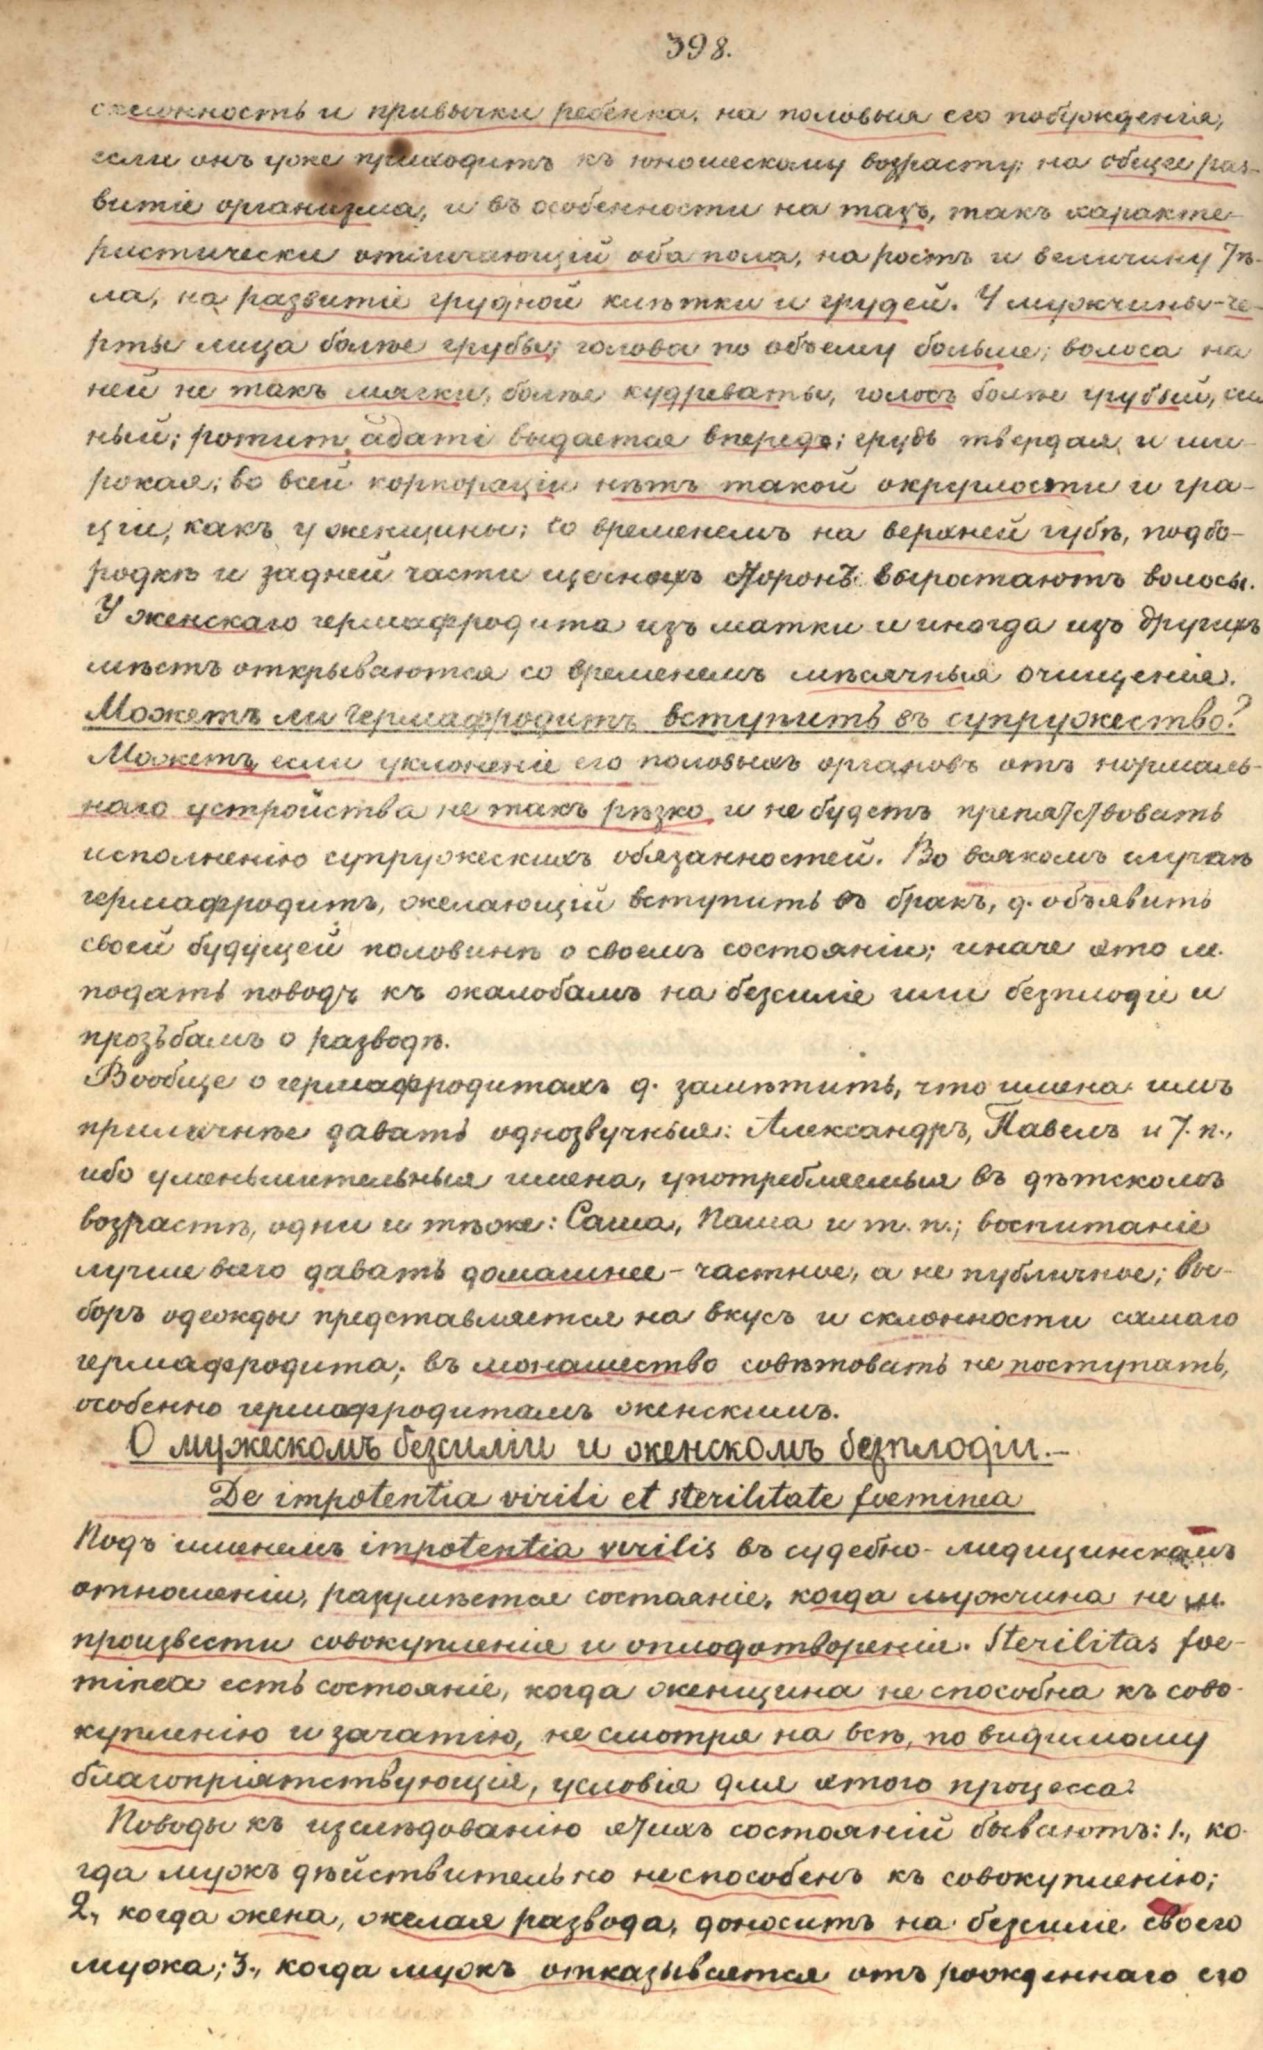 398.
склонность и привычки ребенка, на половыя его побужденія,
если онъ уже приходитъ къ юношескому возрасту; на общее раз-
витіе организма, и въ особенности на тазъ, такъ характе-
ристически отличающій оба пола, на ростъ и величину тѣ-
ла, на развитіе грудной клѣтки и грудей. У мужчины - че-
рты лица болѣе грубы; голова по объему больше; волоса на
ней не такъ мягки, болѣе кудреваты, голосъ болѣе грубый, силь
ный; pomum adami выдается впередъ; грудь твердая и ши-
рокая; во всей корпораціи нѣтъ такой округлости и гра-
ціи, какъ у женщины; со временемъ на верхней губѣ, подбо-
родкѣ и задней части щечныхъ сторонъ выростаютъ волосы.
У женскаго гермафродита изъ матки и иногда изъ другихъ
мѣстъ открываются со временемъ мѣсячныя очищенія.
Можетъ ли гермафродитъ вступить въ супружество?
Можетъ, если уклоненіе его половыхъ органовъ отъ нормаль-
наго устройства не такъ рѣзко и не будетъ препятствовать
исполненію супружескихъ обязанностей. Во всякомъ случаѣ
гермафродитъ, желающій вступить въ бракъ, д. объявить
своей будущей половинѣ о своемъ состояніи; иначе это м.
подать поводъ къ жалобамъ на безсиліе или безплодіе и
прозьбамъ о разводѣ.
Вообще о гермафродитахъ д. замѣтить, что имена имъ
приличнѣе давать однозвучныя: Александръ, Павелъ и т. п.,
ибо уменьшительныя имена, употребляемыя въ дѣтскомъ
возрастѣ, одни и тѣже: Саша, Паша и т. п.; воспитаніе
лучше всего давать домашнее - частное, а не публичное; вы-
боръ одежды представляется на вкусъ и склонности самаго
гермафродита; въ монашество совѣтовать не поступать,
особенно гермафродитамъ женскимъ.
О мужескомъ безсиліи и женскомъ безплодіи.-
De impotentia virili et sterilitate foeminea
Подъ именемъ impotentia virilis въ судебно-медицинскомъ
отношеніи, разумѣется состояніе, когда мужчина не м.
произвести совокупленія и оплодотворенія. Sterilitas foe-
minea есть состояніе, когда женщина не способна къ сово-
купленію и зачатію, не смотря на всѣ, по видимому
благопріятствующія, условія для этого процесса.
Поводы къ изслѣдованію этихъ состояній бываютъ: 1., ко-
гда мужъ дѣйствительно неспособенъ къ совокупленію;
2., когда жена, желая развода, доноситъ на безсиліе своего
мужа; 3., когда мужъ отказывается отъ рожденнаго его